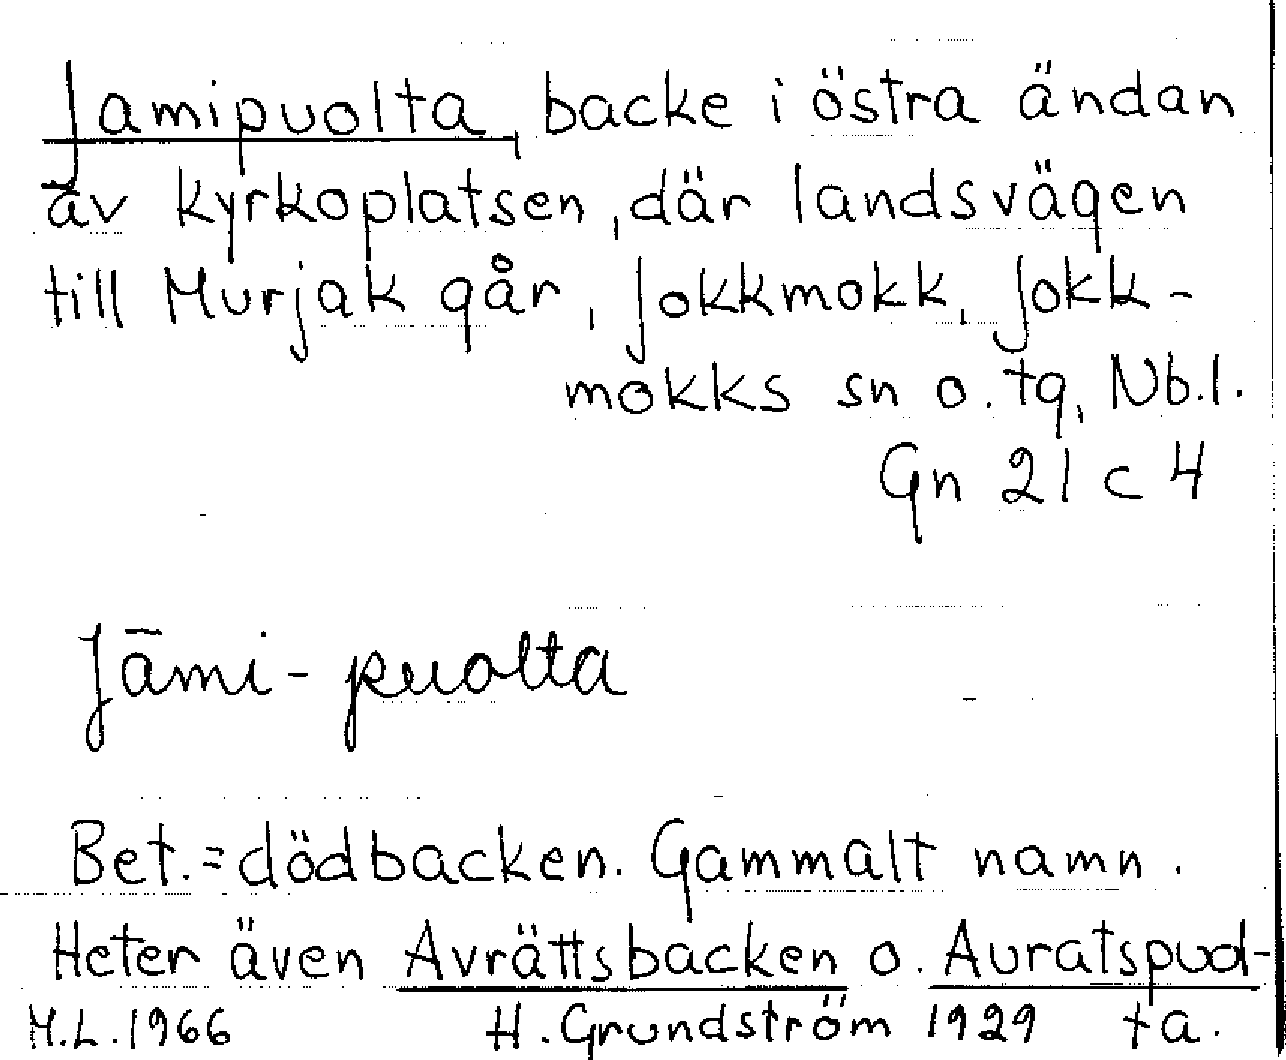 Jamipuolta, backe i östra ändan
av kyrkoplatsen, där landsvägen
till Murjak går, Jokkmokk, Jokk-
mokks sn o. tg, Nb.l.
Gn 21 c 4
Jāmi-puolta
Bet.=dödbacken. Gammalt namn.
Heter även Avrättsbacken o. Auratspuol-
M.L.1966 H.Grundström 1929 ta.